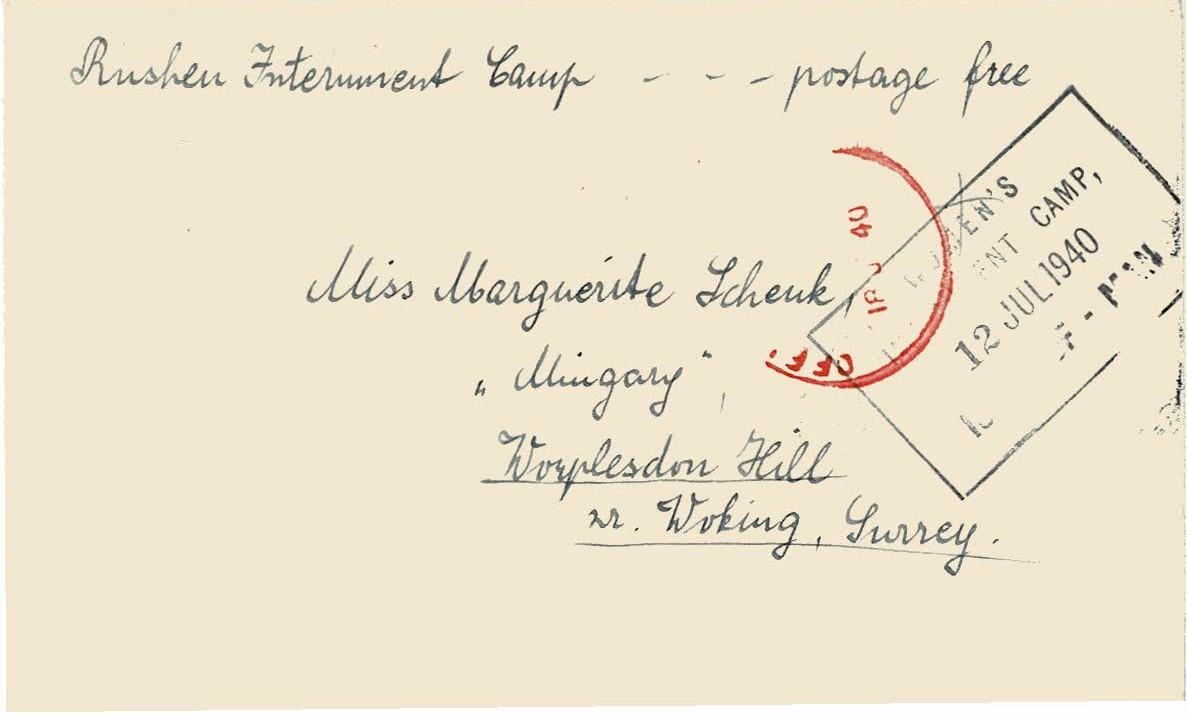 Rushen Internment Camp - - - postage free
Miss Marguerite Schenk,
„Mingary",
Worplesdon Hill
nr. Woking, Surrey.
40
OFF
WOMEN'S
CAMP,
12 JUL 1940